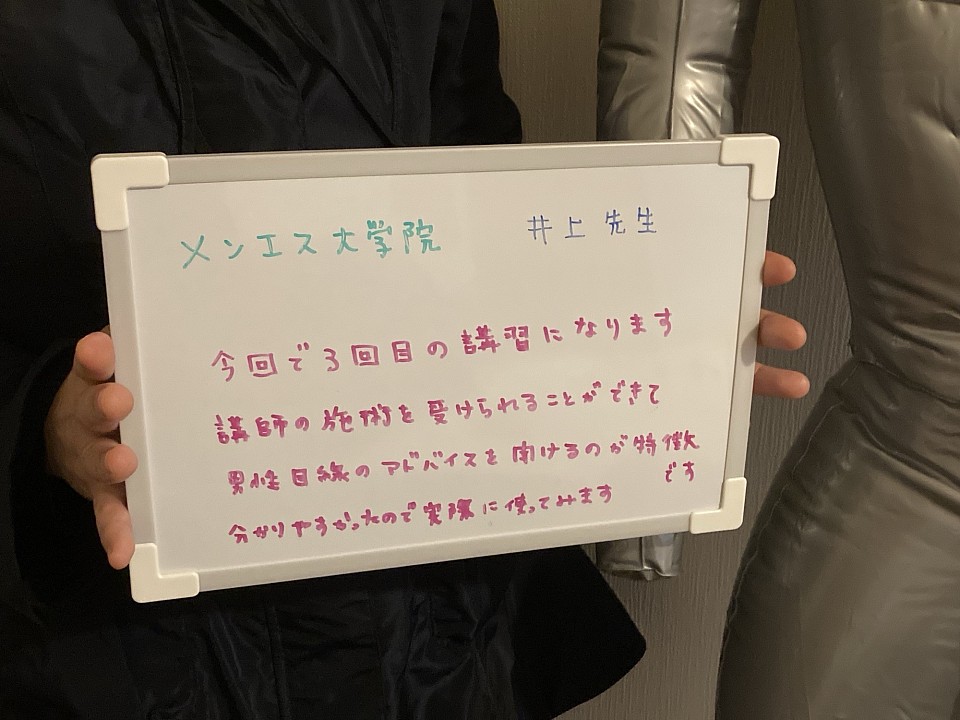 メンエス大学院 井上先生
今回で3回目の講習になります
講師の施術を受けられることができて
男性目線のアドバイスを聞けるのが特徴
です
分かりやすかったので実際に使ってみます